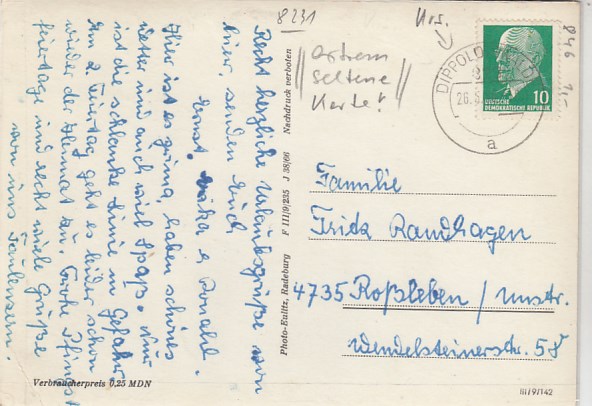 8231
Recht herzliche Urlaubsgrüße von
hier, senden Euch
Ernst, Erika & Ronald.
Hier ist es prima, haben schönes
Wetter und auch viel Spaß. Nur
ist die schlanke Linie in Gefahr
Am 2. Feiertag geht es leider schon
wieder der Heimat zu. Frohe Pfingst
feiertage und recht viele Grüße
von uns Faulenzern.
Verbraucherpreis 0,25 MDN
Photo-Eulitz, Radeburg F III/9/235 J 38/66 Nachdruck verboten
extrem
seltene
Karte!
DIPPOLDISWALDE
26.5.
a
DEUTSCHE
DEMOKRATISCHE REPUBLIK
10
Familie
Fritz Randhagen
4735 Roßleben / Unstr.
Wendelsteinerstr. 58
III/9/142